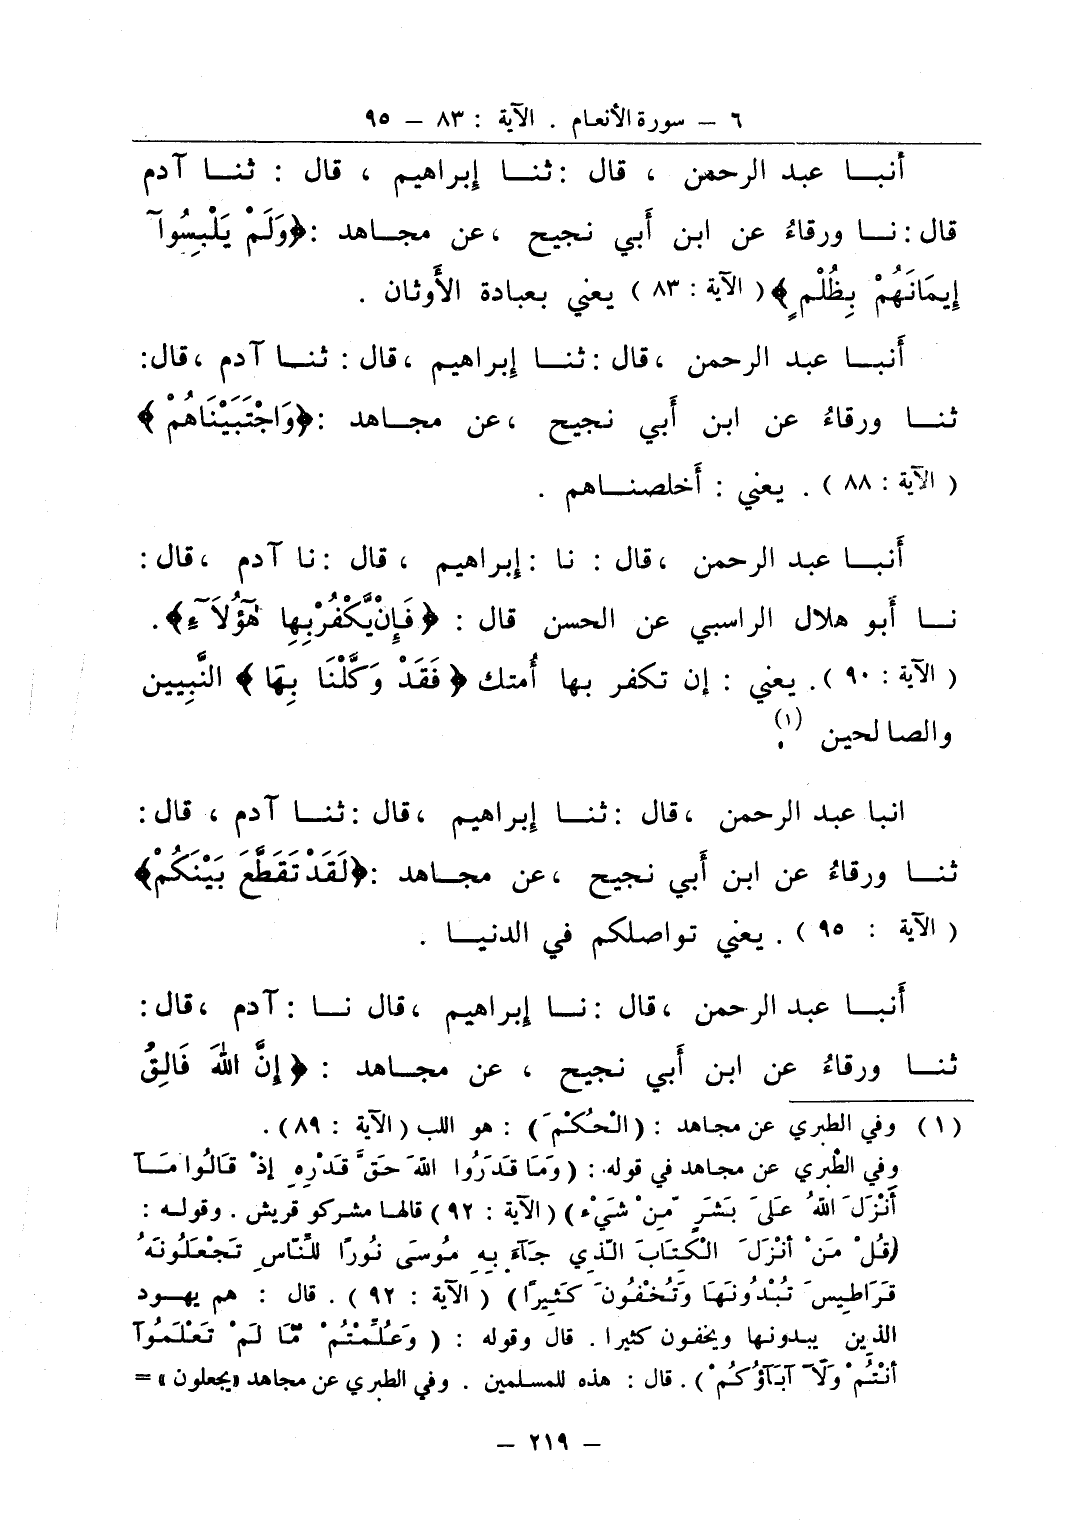 ٦ – سورة الأنعام . الآية : ٨٣ – ٩٥
أنبا عبد الرحمن ، قال : ثنا إبراهيم ، قال : ثنا آدم
قال : نا ورقاءُ عن ابن أبي نجيح ، عن مجاهد : ﴿وَلَمْ يَلْبِسُوآ
إِيمَانَهُمْ بِظُلْمٍ﴾ ( الآية : ٨٣ ) يعني بعبادة الأوثان .
أنبا عبد الرحمن ، قال : ثنا إبراهيم ، قال : ثنا آدم ، قال :
ثنا ورقاءُ عن ابن أبي نجيح ، عن مجاهد : ﴿وَاجْتَبَيْنَاهُمْ﴾
( الآية : ٨٨ ) . يعني : أخلصناهم .
أنبا عبد الرحمن ، قال : نا : إبراهيم ، قال : نا آدم ، قال :
نا أبو هلال الراسبي عن الحسن قال : ﴿فَإِنْ يَّكْفُرْ بِهَا هَٰٓؤُلَآءِ﴾ .
( الآية : ٩٠ ) . يعني : إن تكفر بها أُمتك ﴿فَقَدْ وَكَّلْنَا بِهَا﴾ النَّبِيين
والصالحين (١) .
انبا عبد الرحمن ، قال : ثنا إبراهيم ، قال : ثنا آدم ، قال :
ثنا ورقاءُ عن ابن أبي نجيح ، عن مجاهد : ﴿لَقَدْ تَقَطَّعَ بَيْنَكُمْ﴾
( الآية : ٩٥ ) . يعني تواصلكم في الدنيا .
أنبا عبد الرحمن ، قال : نا إبراهيم ، قال نا : آدم ، قال :
ثنا ورقاءُ عن ابن أبي نجيح ، عن مجاهد : ﴿إِنَّ اللهَ فَالِقُ
(١) وفي الطبري عن مجاهد : (الْحُكْمَ) : هو اللب (الآية : ٨٩) .
وفي الطبري عن مجاهد في قوله : (وَمَا قَدَرُوا اللهَ حَقَّ قَدْرِهِ إِذْ قَالُوا مَآ
أَنْزَلَ اللهُ عَلَى بَشَرٍ مِّنْ شَيْء) (الآية : ٩٢) قالها مشركو قريش . وقوله :
(قُلْ مَنْ أَنْزَلَ الْكِتَابَ الَّذِي جَآءَ بِهِ مُوسَى نُورًا لِّلنَّاسِ تَجْعَلُونَهُ
قَرَاطِيسَ تُبْدُونَهَا وَتُخْفُونَ كَثِيرًا) ( الآية : ٩٢ ) . قال : هم يهود
الذين يبدونها ويخفون كثيرا . قال وقوله : ( وَعُلِّمْتُمْ مَّا لَمْ تَعْلَمُوآ
أَنْتُمْ وَلَآ آبَآؤُكُمْ ) . قال : هذه للمسلمين . وفي الطبري عن مجاهد «يجعلون» =
– ٢١٩ –